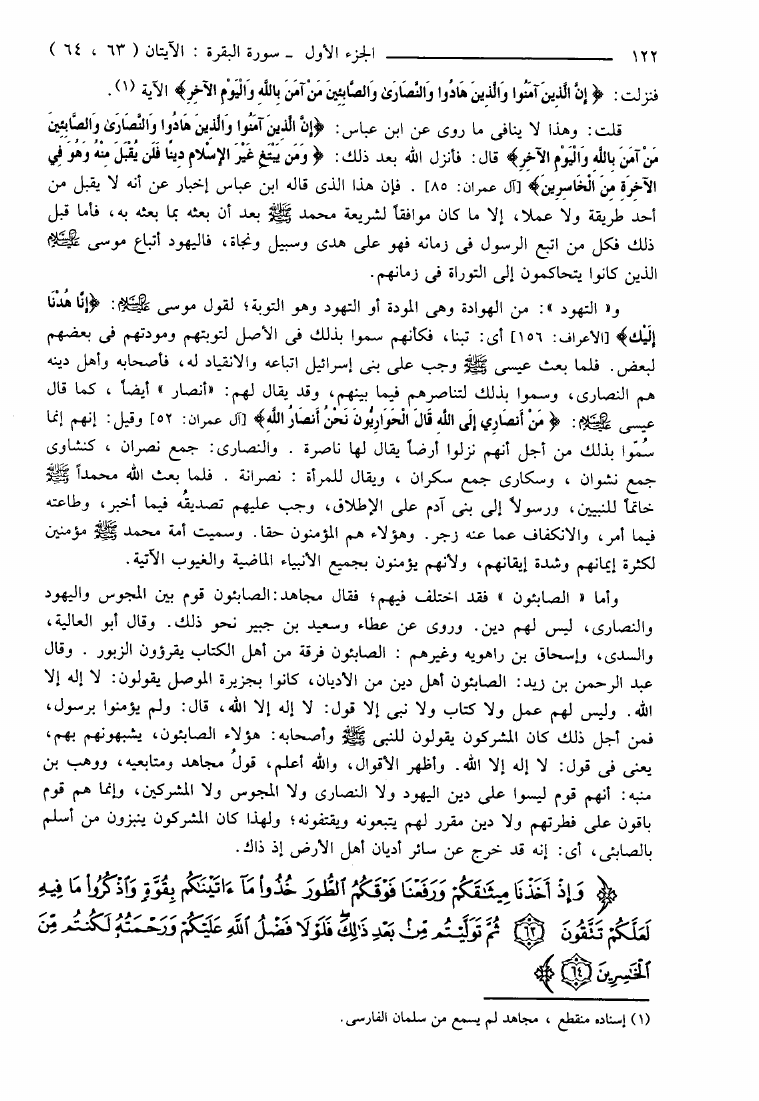 ١٢٢ ــــــــــــــ الجزء الأول ـ سورة البقرة : الآيتان ( ٦٣ ، ٦٤ )
فنزلت: ﴿ إِنَّ الَّذِينَ آمَنُوا وَالَّذِينَ هَادُوا وَالنَّصَارَىٰ وَالصَّابِئِينَ مَنْ آمَنَ بِاللَّهِ وَالْيَوْمِ الآخِرِ﴾ الآية (١).
قلت: وهذا لا ينافى ما روى عن ابن عباس: ﴿إِنَّ الَّذِينَ آمَنُوا وَالَّذِينَ هَادُوا وَالنَّصَارَىٰ وَالصَّابِئِينَ
مَنْ آمَنَ بِاللَّهِ وَالْيَوْمِ الآخِرِ﴾ قال: فأنزل الله بعد ذلك: ﴿ وَمَن يَبْتَغِ غَيْرَ الإِسْلامِ دِينًا فَلَن يُقْبَلَ مِنْهُ وَهُوَ فِي
الآخِرَةِ مِنَ الْخَاسِرِينَ﴾ [آل عمران: ٨٥] . فإن هذا الذى قاله ابن عباس إخبار عن أنه لا يقبل من
أحد طريقة ولا عملا، إلا ما كان موافقاً لشريعة محمد ﷺ بعد أن بعثه بما بعثه به، فأما قبل
ذلك فكل من اتبع الرسول فى زمانه فهو على هدى وسبيل ونجاة، فاليهود أتباع موسى عليه السلام
الذين كانوا يتحاكمون إلى التوراة فى زمانهم.
و« التهود »: من الهوادة وهى المودة أو التهود وهو التوبة؛ لقول موسى عليه السلام: ﴿إِنَّا هُدْنَا
إِلَيْكَ﴾ [الأعراف: ١٥٦] أى: تبنا، فكأنهم سموا بذلك فى الأصل لتوبتهم ومودتهم فى بعضهم
لبعض. فلما بعث عيسى ﷺ وجب على بنى إسرائيل اتباعه والانقياد له، فأصحابه وأهل دينه
هم النصارى، وسموا بذلك لتناصرهم فيما بينهم، وقد يقال لهم: «أنصار » أيضاً ، كما قال
عيسى عليه السلام: ﴿ مَنْ أَنصَارِي إِلَى اللَّهِ قَالَ الْحَوَارِيُّونَ نَحْنُ أَنصَارُ اللَّهِ﴾ [آل عمران: ٥٢] وقيل: إنهم إنما
سُمّوا بذلك من أجل أنهم نزلوا أرضاً يقال لها ناصرة . والنصارى: جمع نصران ، كنشاوى
جمع نشوان ، وسكارى جمع سكران ، ويقال للمرأة : نصرانة . فلما بعث الله محمداً ﷺ
خاتماً للنبيين، ورسولاً إلى بنى آدم على الإطلاق، وجب عليهم تصديقُه فيما أخبر، وطاعته
فيما أمر، والانكفاف عما عنه زجر. وهؤلاء هم المؤمنون حقا. وسميت أمة محمد ﷺ مؤمنين
لكثرة إيمانهم وشدة إيقانهم، ولأنهم يؤمنون بجميع الأنبياء الماضية والغيوب الآتية.
وأما « الصابئون » فقد اختلف فيهم؛ فقال مجاهد:الصابئون قوم بين المجوس واليهود
والنصارى، ليس لهم دين. وروى عن عطاء وسعيد بن جبير نحو ذلك. وقال أبو العالية،
والسدى، وإسحاق بن راهويه وغيرهم : الصابئون فرقة من أهل الكتاب يقرؤون الزبور . وقال
عبد الرحمن بن زيد: الصابئون أهل دين من الأديان، كانوا بجزيرة الموصل يقولون: لا إله إلا
الله. وليس لهم عمل ولا كتاب ولا نبى إلا قول: لا إله إلا الله، قال: ولم يؤمنوا برسول،
فمن أجل ذلك كان المشركون يقولون للنبى ﷺ وأصحابه: هؤلاء الصابئون، يشبهونهم بهم،
يعنى فى قول: لا إله إلا الله. وأظهر الأقوال، والله أعلم، قولُ مجاهد ومتابعيه، ووهب بن
منبه: أنهم قوم ليسوا على دين اليهود ولا النصارى ولا المجوس ولا المشركين، وإنما هم قوم
باقون على فطرتهم ولا دين مقرر لهم يتبعونه ويقتفونه؛ ولهذا كان المشركون ينبزون من أسلم
بالصابئى، أى: إنه قد خرج عن سائر أديان أهل الأرض إذ ذاك.
﴿ وَإِذْ أَخَذْنَا مِيثَٰقَكُمْ وَرَفَعْنَا فَوْقَكُمُ ٱلطُّورَ خُذُوا۟ مَآ ءَاتَيْنَٰكُم بِقُوَّةٍ وَٱذْكُرُوا۟ مَا فِيهِ
لَعَلَّكُمْ تَتَّقُونَ ٦٣ ثُمَّ تَوَلَّيْتُم مِّنۢ بَعْدِ ذَٰلِكَ ۖ فَلَوْلَا فَضْلُ ٱللَّهِ عَلَيْكُمْ وَرَحْمَتُهُۥ لَكُنتُم مِّنَ
ٱلْخَٰسِرِينَ ٦٤ ﴾
(١) إسناده منقطع ، مجاهد لم يسمع من سلمان الفارسى.